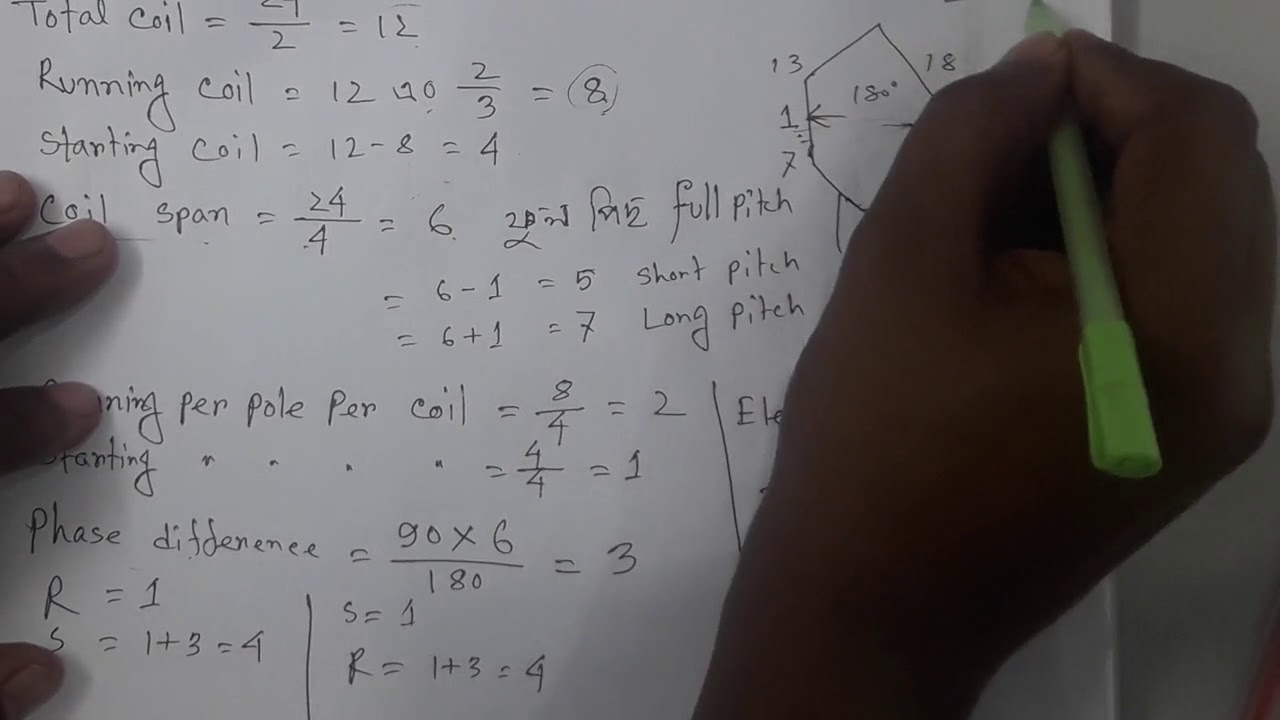 Total coil = 24/2 = 12
Running coil = 12 এর 2/3 = 8
Starting coil = 12-8 = 4
Coil span = 24/4 = 6 full pitch
= 6-1 = 5 short pitch
= 6+1 = 7 Long pitch
ning per pole per coil = 8/4 = 2
Starting " " " " = 4/4 = 1
Phase difference = 90×6/180 = 3
R = 1
S = 1+3 = 4
S = 1
R = 1+3 = 4
13
18
180°
1
7
Ele